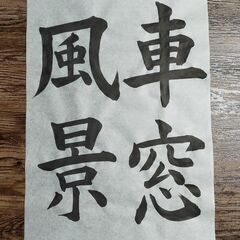 車窓
風景